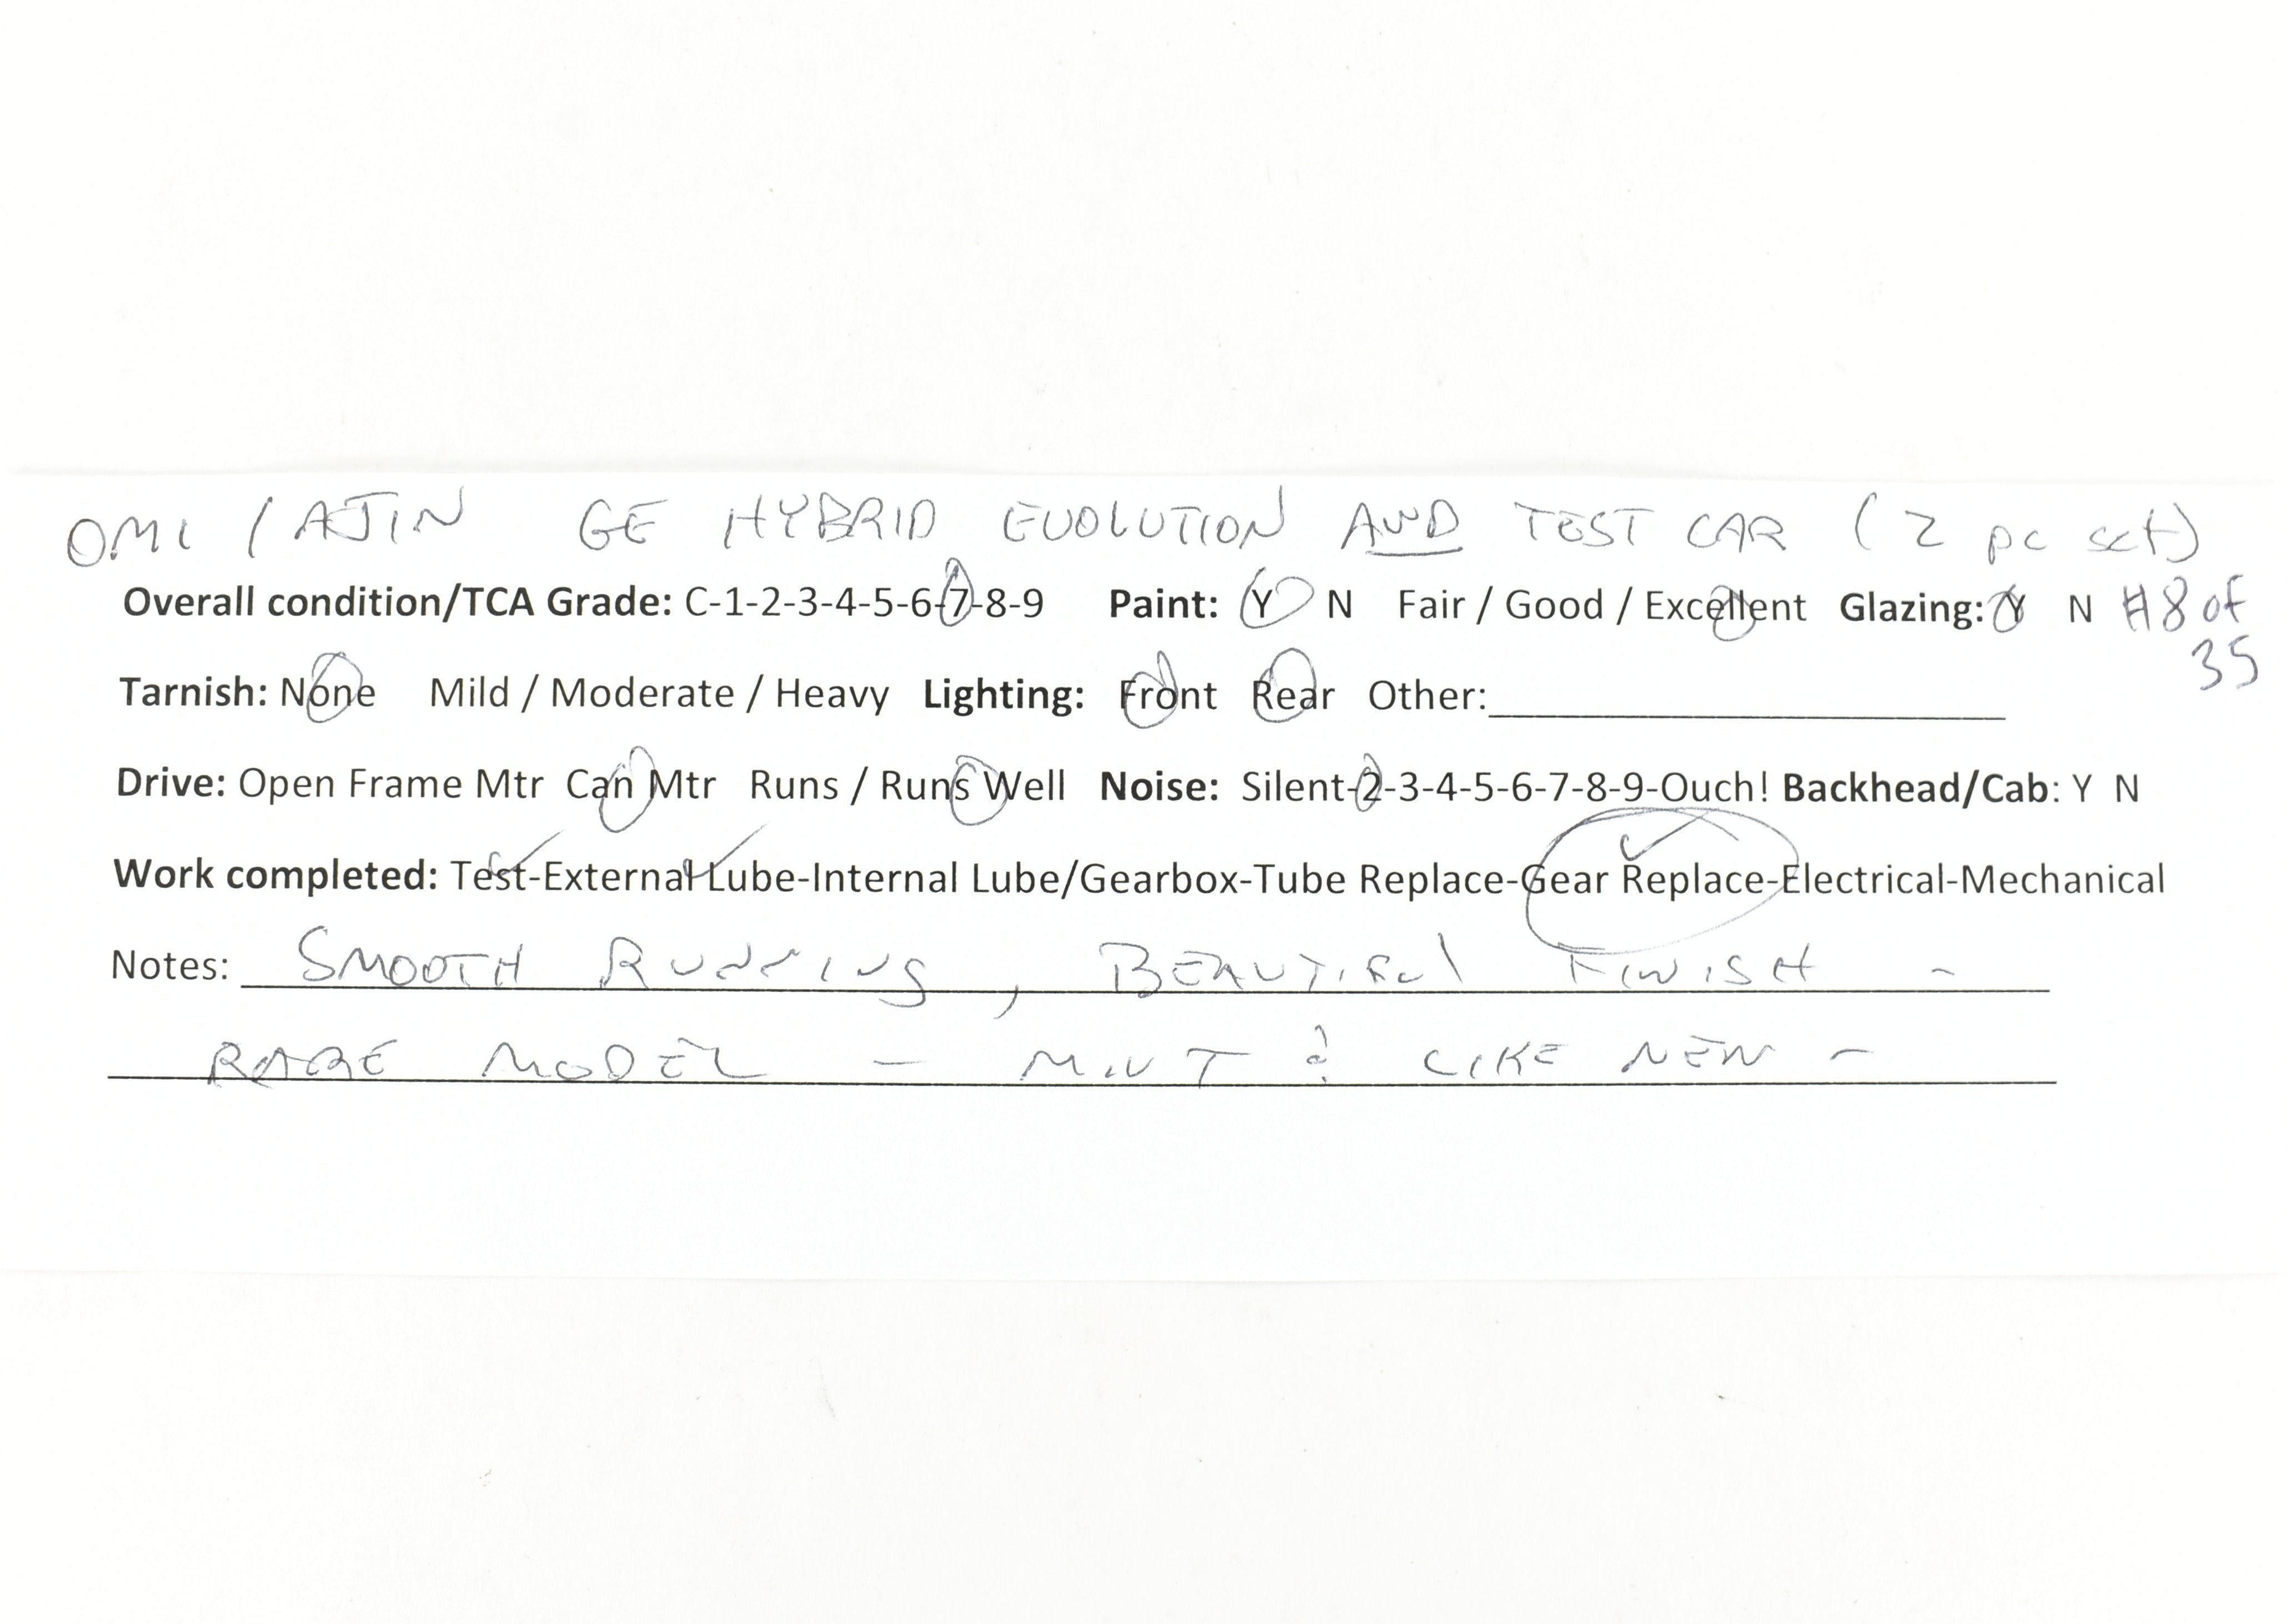 OMI / AJIN GE HYBRID EVOLUTION AND TEST CAR (2 pc set)
Overall condition/TCA Grade: C-1-2-3-4-5-6-7-8-9 Paint: Y N Fair / Good / Excellent Glazing: Y N #8 of
35
Tarnish: None Mild / Moderate / Heavy Lighting: Front Rear Other:
Drive: Open Frame Mtr Can Mtr Runs / Runs Well Noise: Silent-2-3-4-5-6-7-8-9-Ouch! Backhead/Cab: Y N
Work completed: Test-External Lube-Internal Lube/Gearbox-Tube Replace-Gear Replace-Electrical-Mechanical
Notes: SMOOTH RUNNING, BEAUTIFUL FINISH -
RARE MODEL - MINT & LIKE NEW -